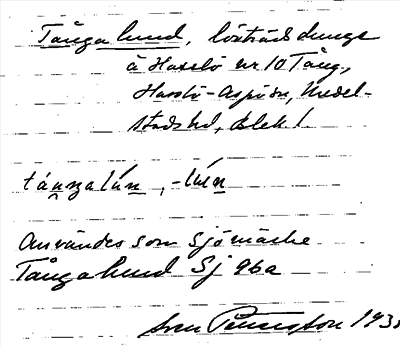 Tånga lund, lövträdsdunge
å Hasslö nr 10 Tång,
Hasslö-Aspösn, Medel-
stads hd, Blek. l.
Användes som sjömärke
Tångalund Sj 96a
Sven